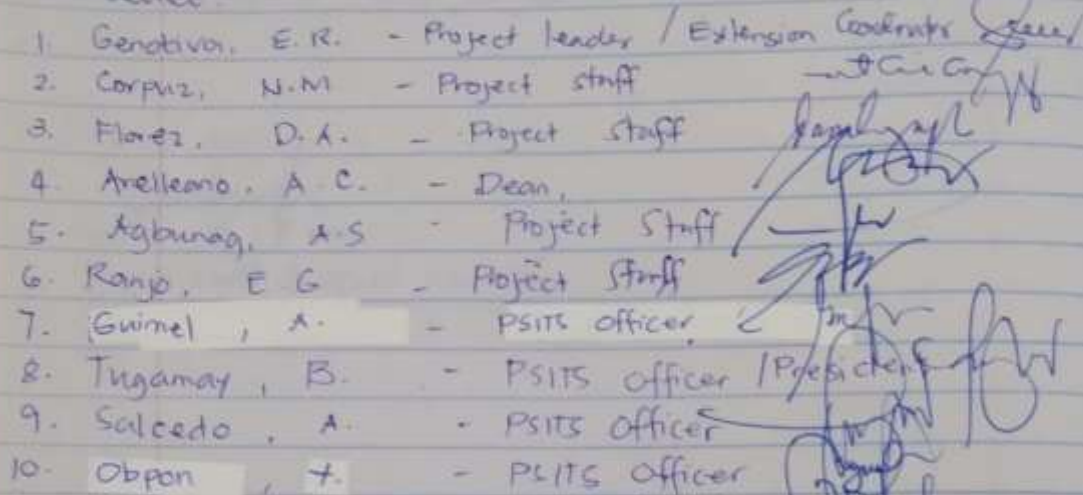 1. Genotiva, E.R. - Project leader / Extension Coordinator
2. Corpuz, N.M - Project staff
3. Florez, D.A. - Project Staff
4. Arelleano, A.C. - Dean,
5. Agbunag, A.S - Project Staff
6. Ranjo, E G - Project Staff
7. Guimel, A. - PSITS Officer
8. Tugamay, B. - PSITS Officer / President
9. Salcedo, A. - PSITS Officer
10. Obpon, - PSITS Officer